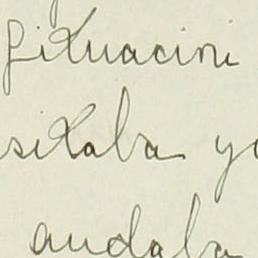 situacini
sitaba yo
andaba